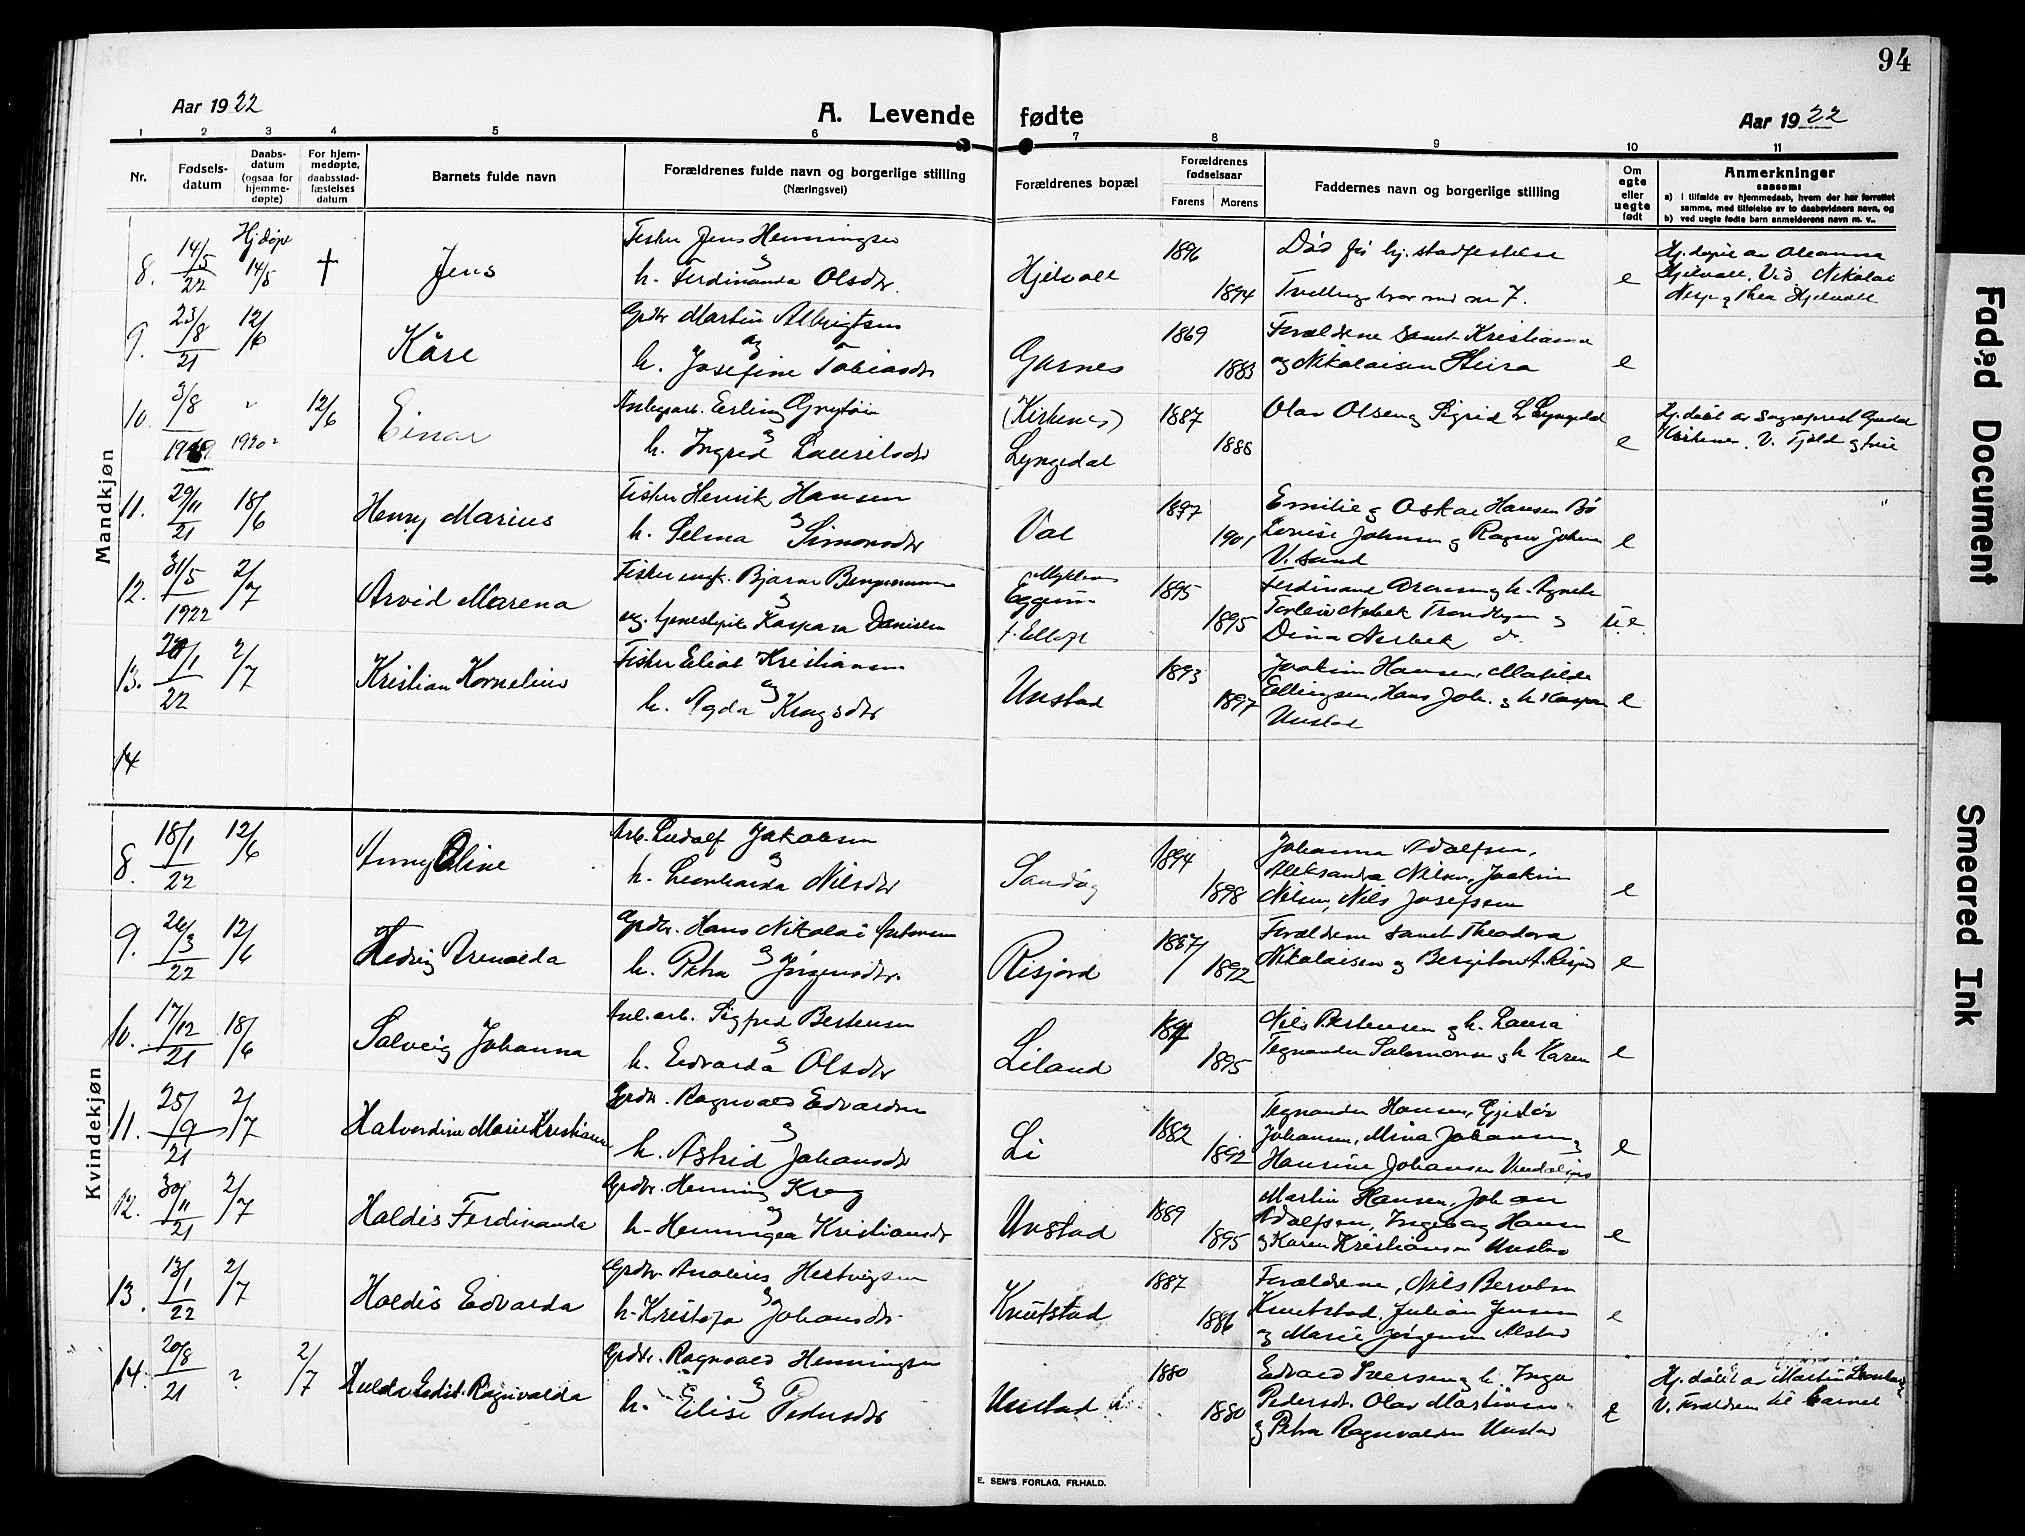 94
Aar 1922
A. Levende fødte
Aar 1922
1 2 3 4 5 6 7 8 9 10 11
Nr.
Fødsels-
datum
Daabs-
datum
(ogsaa for
hjemme-
døpte)
For hjem-
medøpte,
daabsstad-
fæstelses
datum
Barnets fulde navn
Forældrenes fulde navn og borgerlige stilling
(Næringsvei)
Forældrenes bopæl
Forældrenes
fødselsaar
Farens Morens
Faddernes navn og borgerlige stilling
Om
egte
eller
uegte
født
Anmerkninger
saasom:
a) i tilfælde av hjemmedaab, hvem der har forrettet
samme, med tilføielse av to daabsvidners navn, og
b) ved uegte fødte barn anmelderens navn m. v..
Mandkjøn
8. 14/5 22 Hjdøpt 14/5 † Jens
Fisker Jens Henningsen
og
h. Ferdinanda Olsdtr.
Hjelvoll 1896 1894
Død før hj. stadfestelse
Tvillingbror med nr 7. e
Hj. døpt av Oleanna
Hjelvoll, Vid. Nikolai
og Thea Hjelvoll
9. 23/8 21 12/6 Kåre
Grdbr Martin Albrigtsen
og
h. Josefine Tobiasdtr
Garnes 1869 1883
Forældrene samt Kristianna
og Nikolaisen Steira e
10. 3/8 12/6 Einar
1920
Erling Grytøir
og
h. Ingrid Lauritsdtr
(Kirkenes)
Lyngedal 1887 1888
Olav Olsen og Sigrid L Lyngedal e
Hj. døbt av Sogneprest
Kirkenes, V. Fjeld og frue
11. 29/11 21 18/6 Henry Marius
Fisker Henrik Hansen
og
h. Selma Simonsdtr
Val 1897 1901
Emilie og Oskar Hansen Bø
Lovise Johnsen og Ragnv Johnsen
V. Sand e
12. 31/5 1922 2/7 Arvid Marena
Fisker ungk. Bjarne
og
Kaspara Danielsen
Eggum 1895 1895
Ferdinand og h. Agnete
Torleiv Nesbek Trondhjem og
Dina Nesbek do. u.e.
13. 1 22 2/7 Kristian Kornelius
Fisker Eliot Kristiansen
og
h. Agda Kragsdtr
Unstad 1893 1897
Joakim Hansen, Matilde
Ellingsen, Hans Joh. og h Kaspara
Unstad e
14
Kvindekjøn
8. 18/1 22 12/6 Anny Oline
Arb. Ludolf Jakobsen
og
h. Leonharda Nilsdtr
Sandøg 1894 1898
Johanna Adolfsen,
Aleksandra Nilsen, Joakim
Nilsen, Nils Josefsen e
9. 26/3 22 12/6 Hedvig Arenolda
Grdbr. Hans Nikolai
og
h. Petra Jørgensdtr.
Risjord 1887 1892
Forældrene samt Theodora
Nikolaisen og Bergiton A. Risjord e
10. 17/12 21 18/6 Solveig Johanna
Anl. arb. Sigfred Bertensen
og
h. Edvarda Olsdtr
Liland 1895
Nils Bertensen og h. Laura
Tegnander Salomonsen og h Karen e
11. 25/9 21 2/7 Halvordine Marie Kristianne
Grdbr. Ragnvald Edvardsen
og
h. Astrid Johansdtr
Li 1882 1892
Tegnander Hansen, Gjertør
Johansen, Mina Johansen og
Hansine Johansen e
12. 30/11 21 2/7 Haldis Ferdinanda
Grdbr. Henning Krog
og
h. Henningea Kristiansdtr
Unstad 1889 1895
Martin Hansen, Johan
Adolfsen, Ingeborg Hansen
og Karen Kristiansen Unstad e
13. 13/1 22 2/7 Haldis Edvarda
Grdbr. Analius Hertvigsen
og
h. Kristofa Johansdtr.
Knutstad 1887 1886
Forældrene, Nils Berntsen
Knutstad, Julian Jensen
og Marie Jørgensen Alstad e
14. 20/8 21 ? 2/7 Hulda Endit Ragnvalda
Grdbr. Ragnvald Henningsen
og
h. Elise Pedersdtr
Unstad 1880 1880
Edvard Iversen og h. Inga
Pedersdt. Olav Martinsen
og Petra Ragnvaldsen Unstad e
Hj. døbt av Martin
V. Forældrene til barnet
E. SEM'S FORLAG, FR.HALD.
Faded Document
Smeared Ink